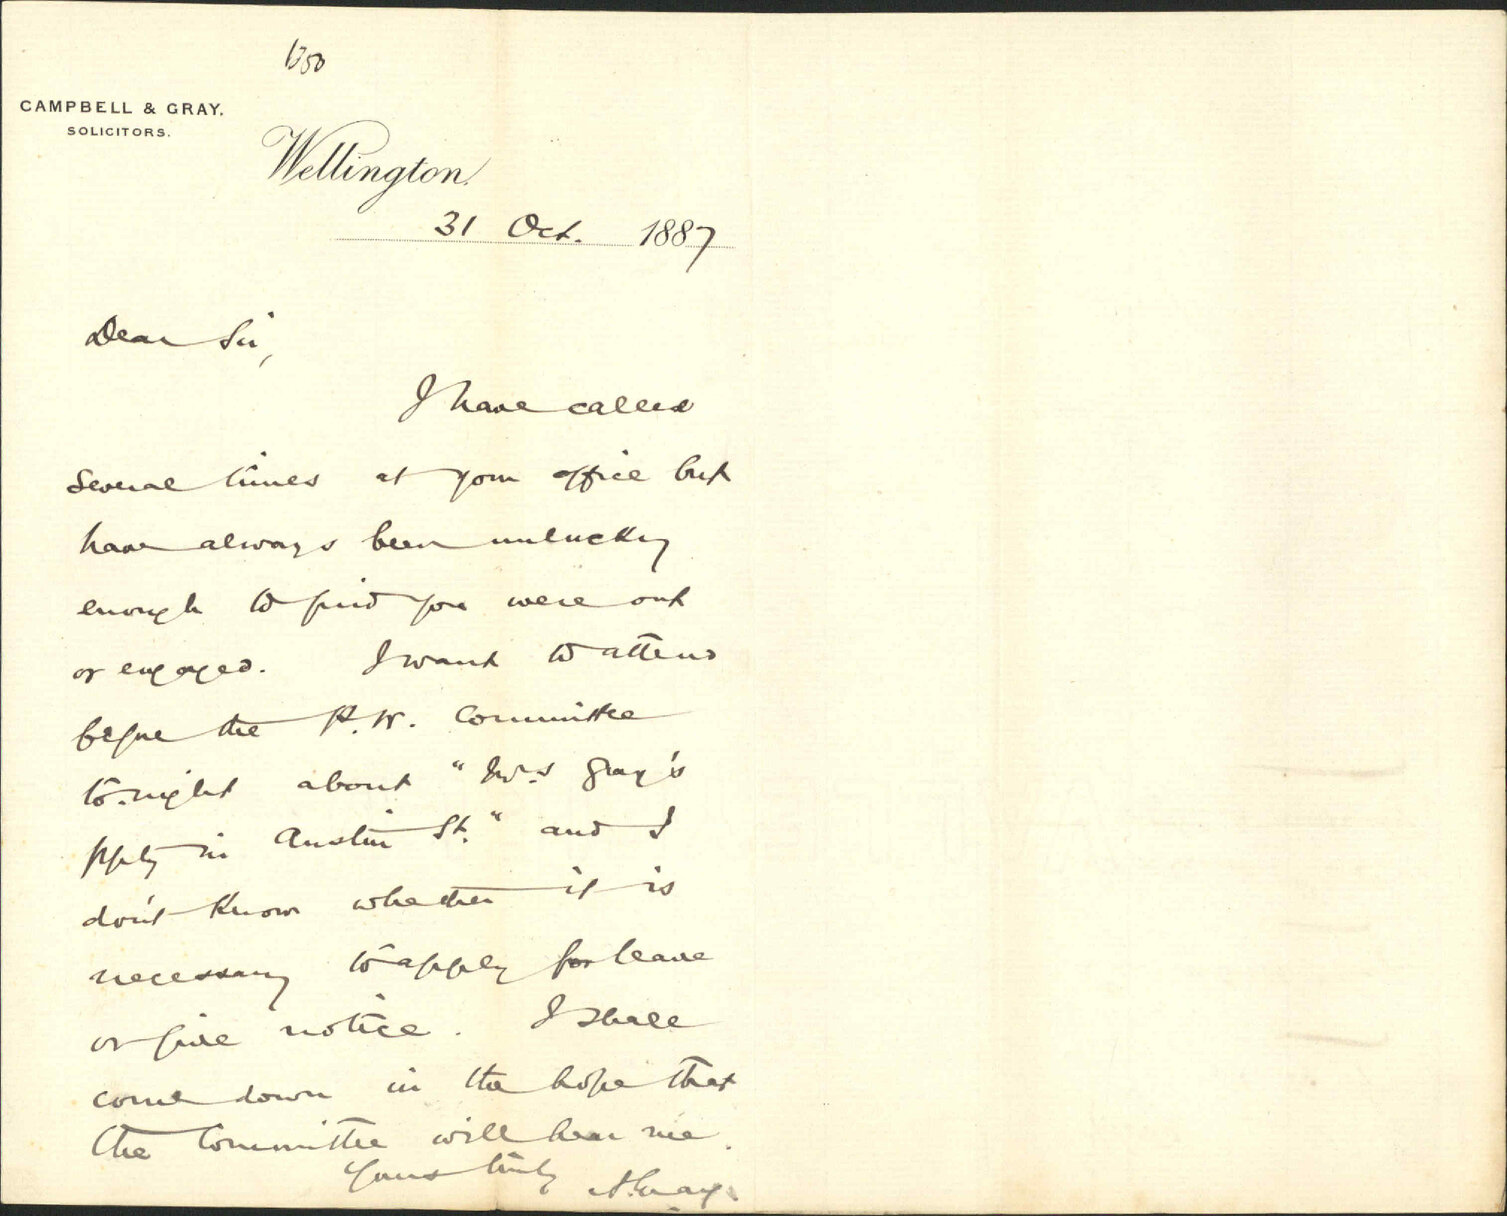 1350
CAMPBELL & GRAY.
SOLICITORS.
Wellington.
31 Oct. 1887
Dear Sir,
I have called
several times at your office but
have always been unlucky
enough to find you were out
or engaged. I want to attend
before the P.W. Committee
to-night about "Mrs Gray's
ppty in Austin St." and I
don't know whether it is
necessary to apply for leave
or give notice. I shall
come down in the hope that
the Committee will hear me.
Yours truly
Gray.